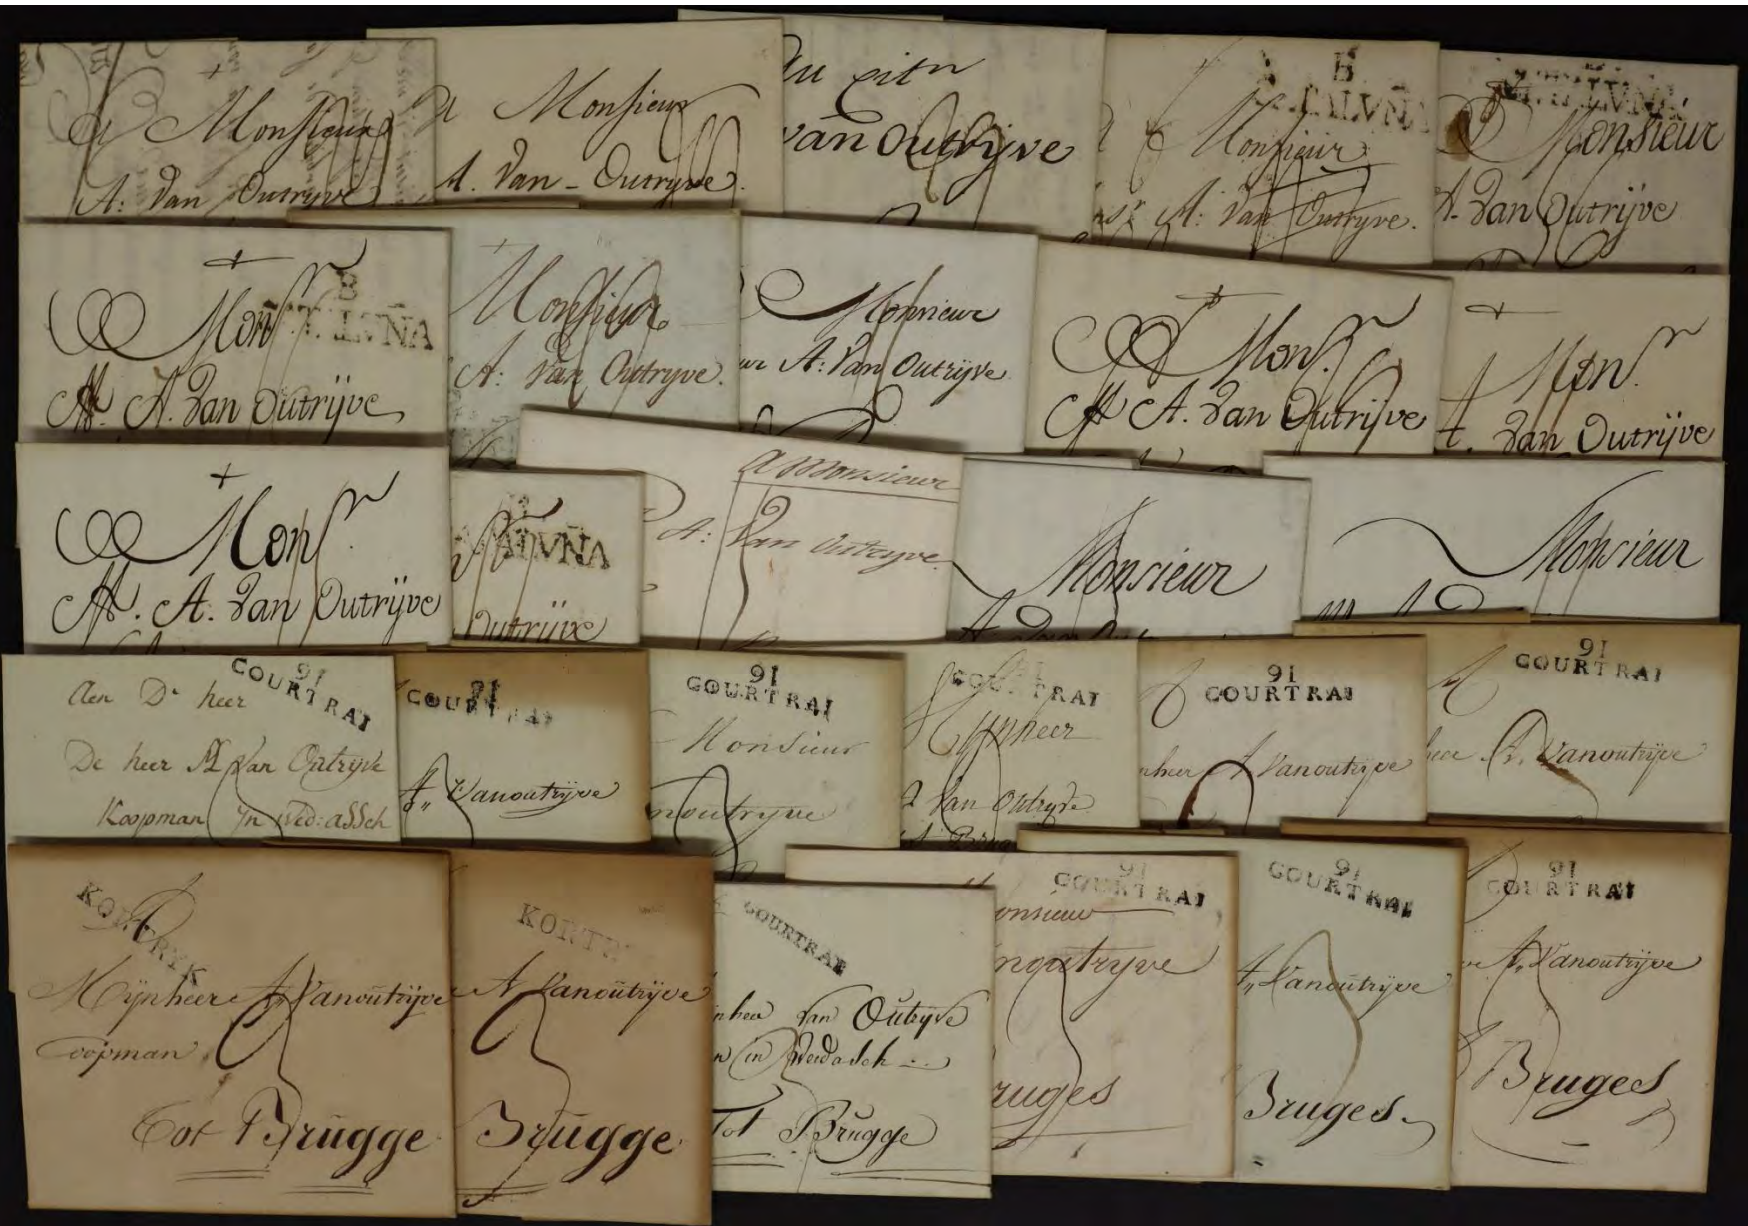 A Monsieur
A: Van Outryve
A Monsieur
A. Van - Outryve.
Au citn
van Outrijve
B
CATALVÑA
Monsieur
A: Van Outryve.
Monsieur
A. Van Outrijve
B
CATALVÑA
Monsr
A. Van Outrijve
Monsieur
A: Van Outryve.
Monsieur
A: Van Outrijve
Monsr.
A. Van Outrijve
Monsr.
A. Van Outrijve
Monsr.
A. Van Outrijve
CATALVÑA
Outrijve
a Monsieur
A: Van Outryve.
Monsieur
Monsieur
91
COURTRAI
Aen Dr heer
De heer A Van Outryve
Koopman In Wed:assch
91
COURTRAI
A,, Vanoutrijve
91
COURTRAI
Monsieur
noutryve
91
COURTRAI
Mynheer
Van Outryve
91
COURTRAI
nheer A Vanoutrijve
91
COURTRAI
heer A. Vanoutrijve
KORTRYK
Mijnheer A Vanoutrijve
Coopman
Tot Brugge
KORTR
A Vanoutrijve
Brugge
COURTRAI
nheer Van Outrijve
n in Weedasch
Tot Brugge
91
COURTRAI
onsieur
noutryve
ruges
91
COURTRAI
A,, Vanoutrijve
Bruges.
91
COURTRAI
A,, Vanoutrijve
Bruges